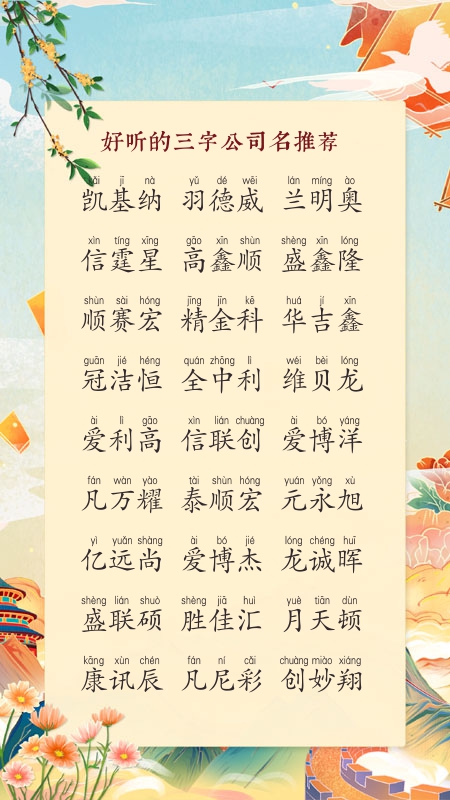 好听的三字公司名推荐
kǎi jī nà yǔ dé wēi lán míng ào
凯基纳 羽德威 兰明奥
xìn tíng xīng gāo xīn shùn shèng xīn lóng
信霆星 高鑫顺 盛鑫隆
shùn sài hóng jīng jīn kē huá jí xīn
顺赛宏 精金科 华吉鑫
guān jié héng quán zhōng lì wéi bèi lóng
冠洁恒 全中利 维贝龙
ài lì gāo xìn lián chuàng ài bó yáng
爱利高 信联创 爱博洋
fán wàn yào tài shùn hóng yuán yǒng xù
凡万耀 泰顺宏 元永旭
yì yuǎn shàng ài bó jié lóng chéng huī
亿远尚 爱博杰 龙诚晖
shèng lián shuò shèng jiā huì yuè tiān dùn
盛联硕 胜佳汇 月天顿
kāng xùn chén fán ní cǎi chuàng miào xiáng
康讯辰 凡尼彩 创妙翔